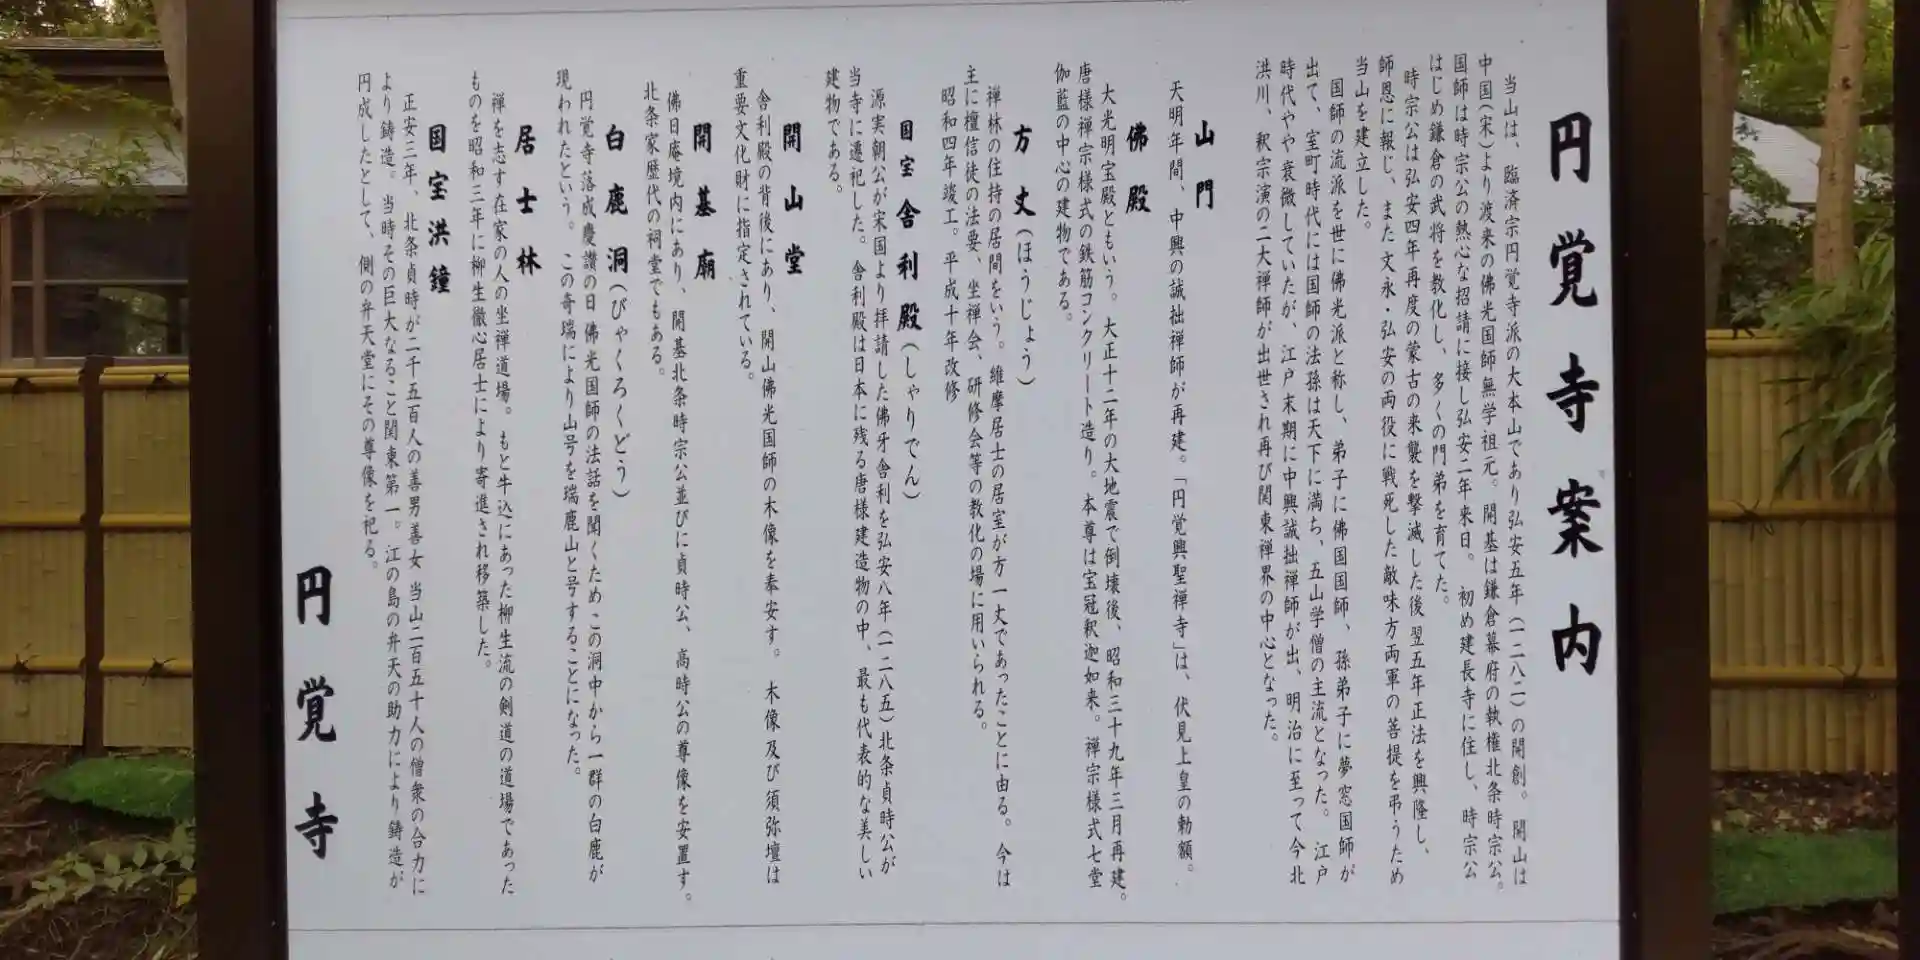 円覚寺案内
当山は、臨済宗円覚寺派の大本山であり弘安五年（一二八二）の開創。開山は
中国（宋）より渡来の佛光国師無学祖元。開基は鎌倉幕府の執権北条時宗公。
国師は時宗公の熱心な招請に接し弘安二年来日。初め建長寺に住し、時宗公
はじめ鎌倉の武将を教化し、多くの門弟を育てた。
時宗公は弘安四年再度の蒙古の来襲を撃滅した後翌五年正法を興隆し、
師恩に報じ、また文永・弘安の両役に戦死した敵味方両軍の菩提を弔うため
当山を建立した。
国師の流派を世に佛光派と称し、弟子に佛国国師、孫弟子に夢窓国師が
出て、室町時代には国師の法孫は天下に満ち、五山学僧の主流となった。江戸
時代やや衰微していたが、江戸末期に中興誠拙禅師が出、明治に至って今北
洪川、釈宗演の二大禅師が出世され再び関東禅界の中心となった。
山門
天明年間、中興の誠拙禅師が再建。「円覚興聖禅寺」は、伏見上皇の勅額。
佛殿
大光明宝殿ともいう。大正十二年の大地震で倒壊後、昭和三十九年三月再建。
唐様禅宗様式の鉄筋コンクリート造り。本尊は宝冠釈迦如来。禅宗様式七堂
伽藍の中心の建物である。
方丈（ほうじょう）
禅林の住持の居間をいう。維摩居士の居室が方一丈であったことに由る。今は
主に檀信徒の法要、坐禅会、研修会等の教化の場に用いられる。
昭和四年竣工。平成十年改修
国宝舎利殿（しゃりでん）
源実朝公が宋国より拝請した佛牙舎利を弘安八年（一二八五）北条貞時公が
当寺に遷祀した。舎利殿は日本に残る唐様建造物の中、最も代表的な美しい
建物である。
開山堂
舎利殿の背後にあり、開山佛光国師の木像を奉安す。木像及び須弥壇は
重要文化財に指定されている。
開基廟
佛日庵境内にあり、開基北条時宗公並びに貞時公、高時公の尊像を安置す。
北条家歴代の祠堂でもある。
白鹿洞（びゃくろくどう）
円覚寺落成慶讃の日佛光国師の法話を聞くためこの洞中から一群の白鹿が
現われたという。この奇瑞により山号を瑞鹿山と号することになった。
居士林
禅を志す在家の人の坐禅道場。もと牛込にあった柳生流の剣道の道場であった
ものを昭和三年に柳生徹心居士により寄進され移築した。
国宝洪鐘
正安三年、北条貞時が二千五百人の善男善女当山二百五十人の僧衆の合力に
より鋳造。当時その巨大なること関東第一。江の島の弁天の助力により鋳造が
円成したとして、側の弁天堂にその尊像を祀る。
円覚寺